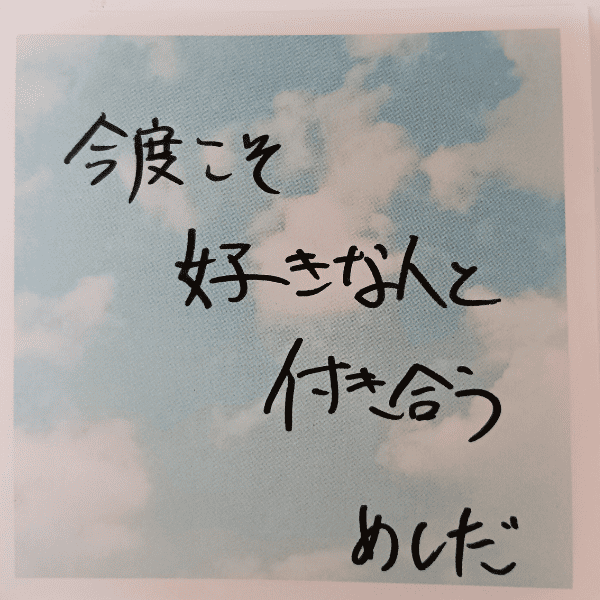 今度こそ
好きな人と
付き合う
めしだ